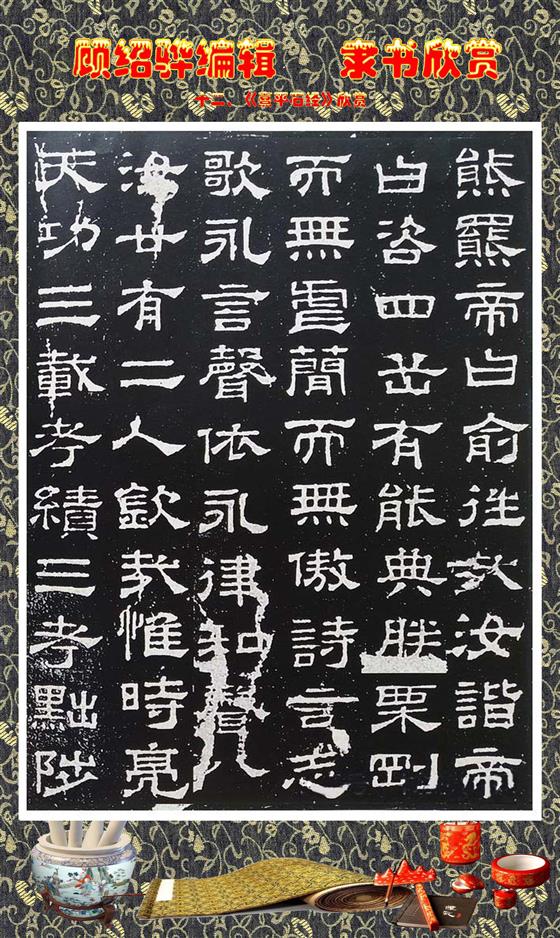 顾绍骅编辑 隶书欣赏
十二、《熹平石经》欣赏
熊羆帝曰俞往哉汝諧帝
曰咨四岳有能典朕栗剛
而無虐簡而無傲詩言志
歌永言聲依永律和聲八
汝廿有二人欽哉惟時亮
天功三載考績三考黜陟